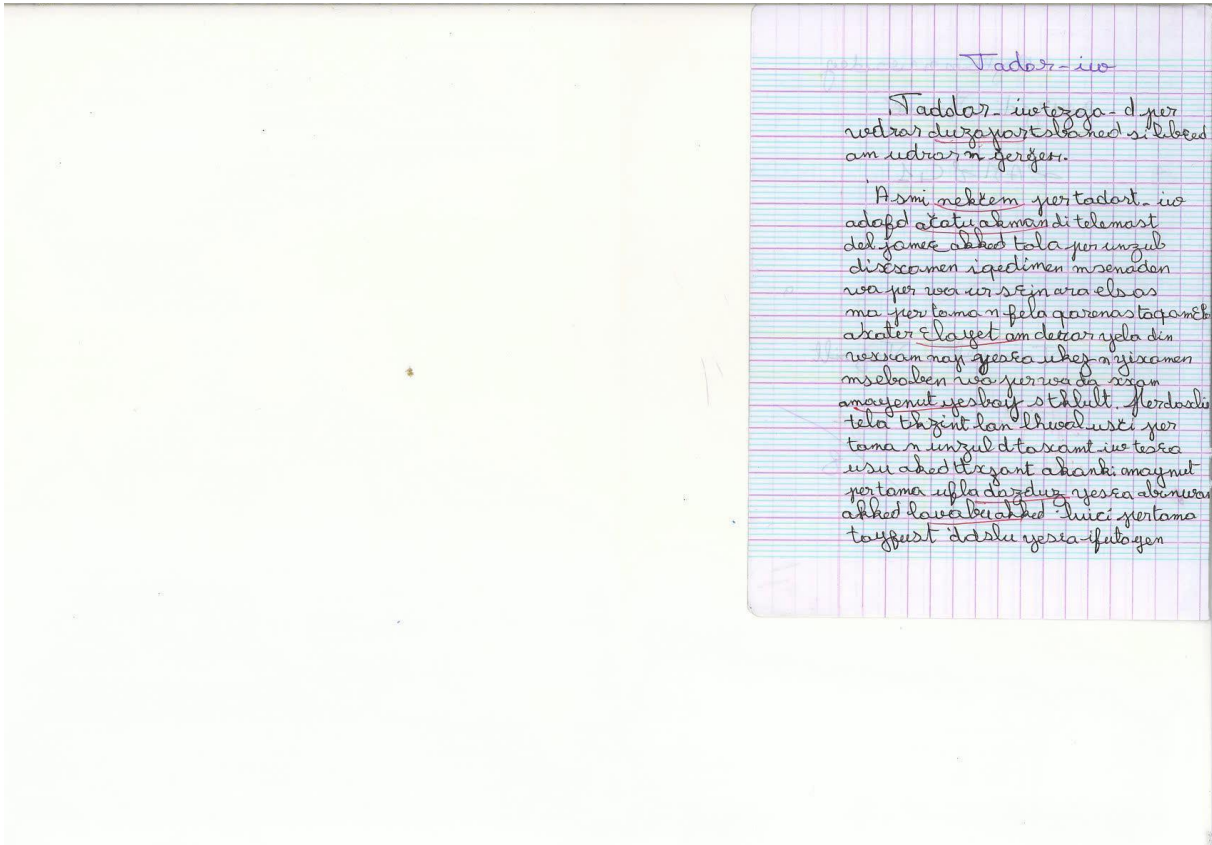 Tadar-iw
Taddar-iwtezga-d ɣer
wdrar duzayart sbaɛed si libɛed
am udrar n ǧerǧer.
Asmi nekčem ɣertadart-iw
adafd ačatuakmanditelemast
del jameɛ akked tala ɣer unzul
dixxamen iqedimen msenaden
wa ɣer wa ur sɛin ara elsas
ma ɣer tama n fela qarenas
axater ɛlayet am derar yela din
wexxam naɣ yesɛa ukez n yixamen
mseboben wa ɣer wa da xxam
amayenut yesbaɣ s thlult.
tela thzint lan lhwal usči ɣer
tama n unzul d taxamt iw tesɛa
usu aked ttxzant akanki amaynut
ɣer tama ufla dazduz yesɛa
akked lavabu akked luici ɣertama
tayfust ddslu yesɛa ifutayen